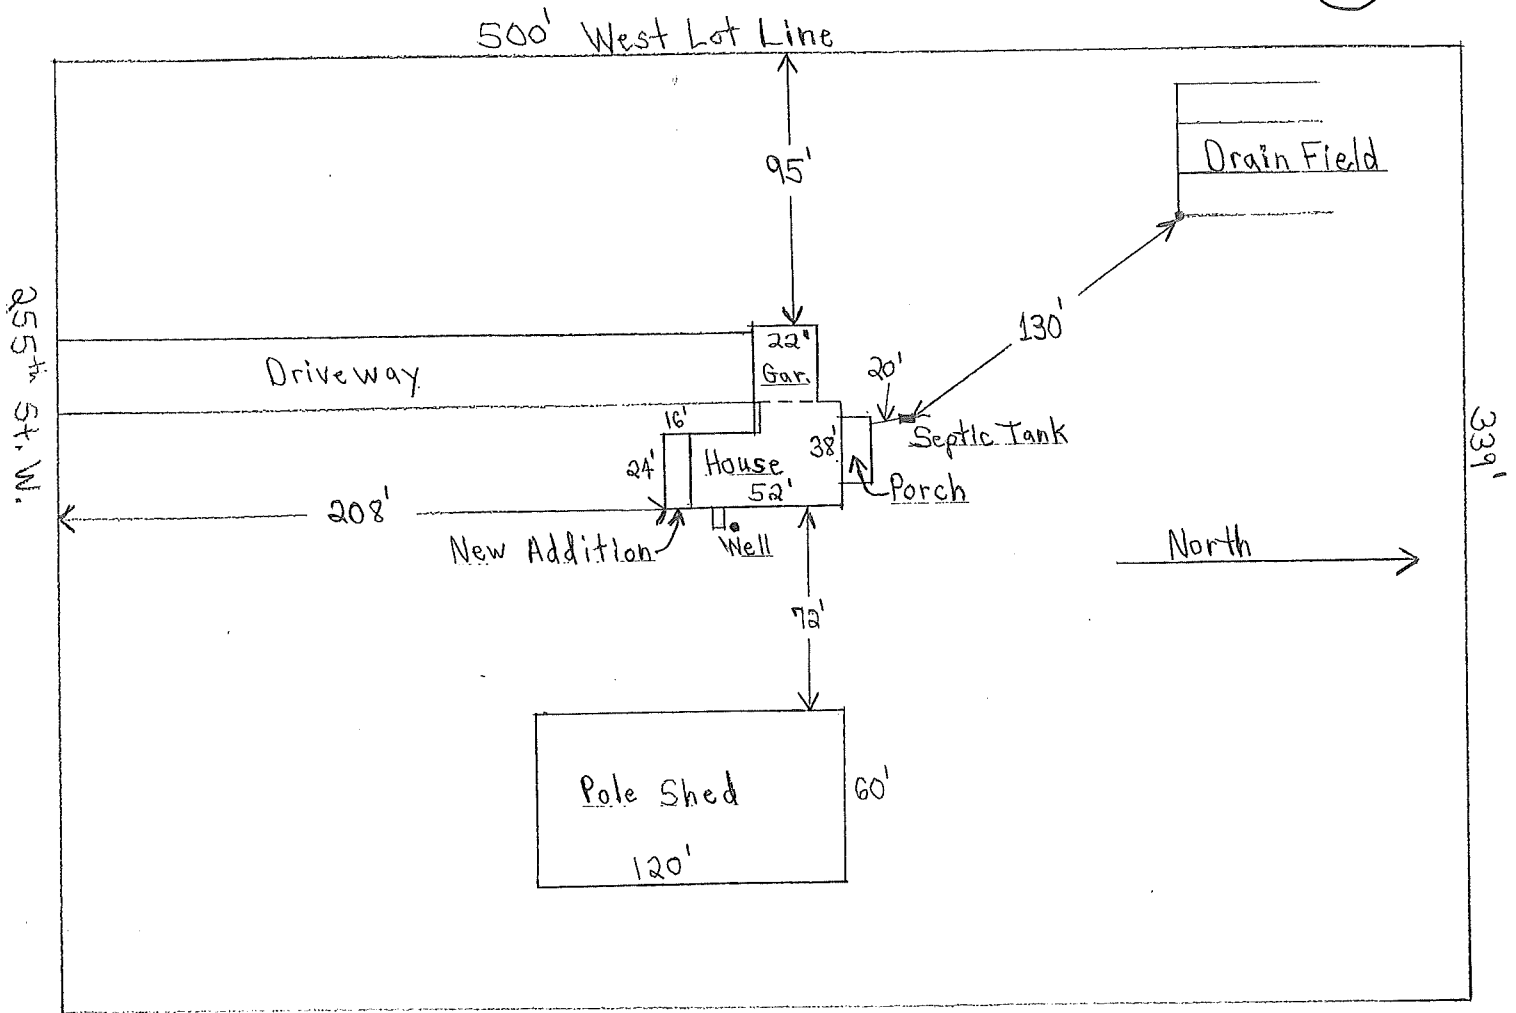 500' West Lot Line
95'
Drain Field
130'
255th St. W.
Driveway
22'
Gar.
20'
Septic Tank
339'
16'
24'
House
38'
52'
Porch
208'
New Addition
Well
North
72'
Pole Shed
60'
120'